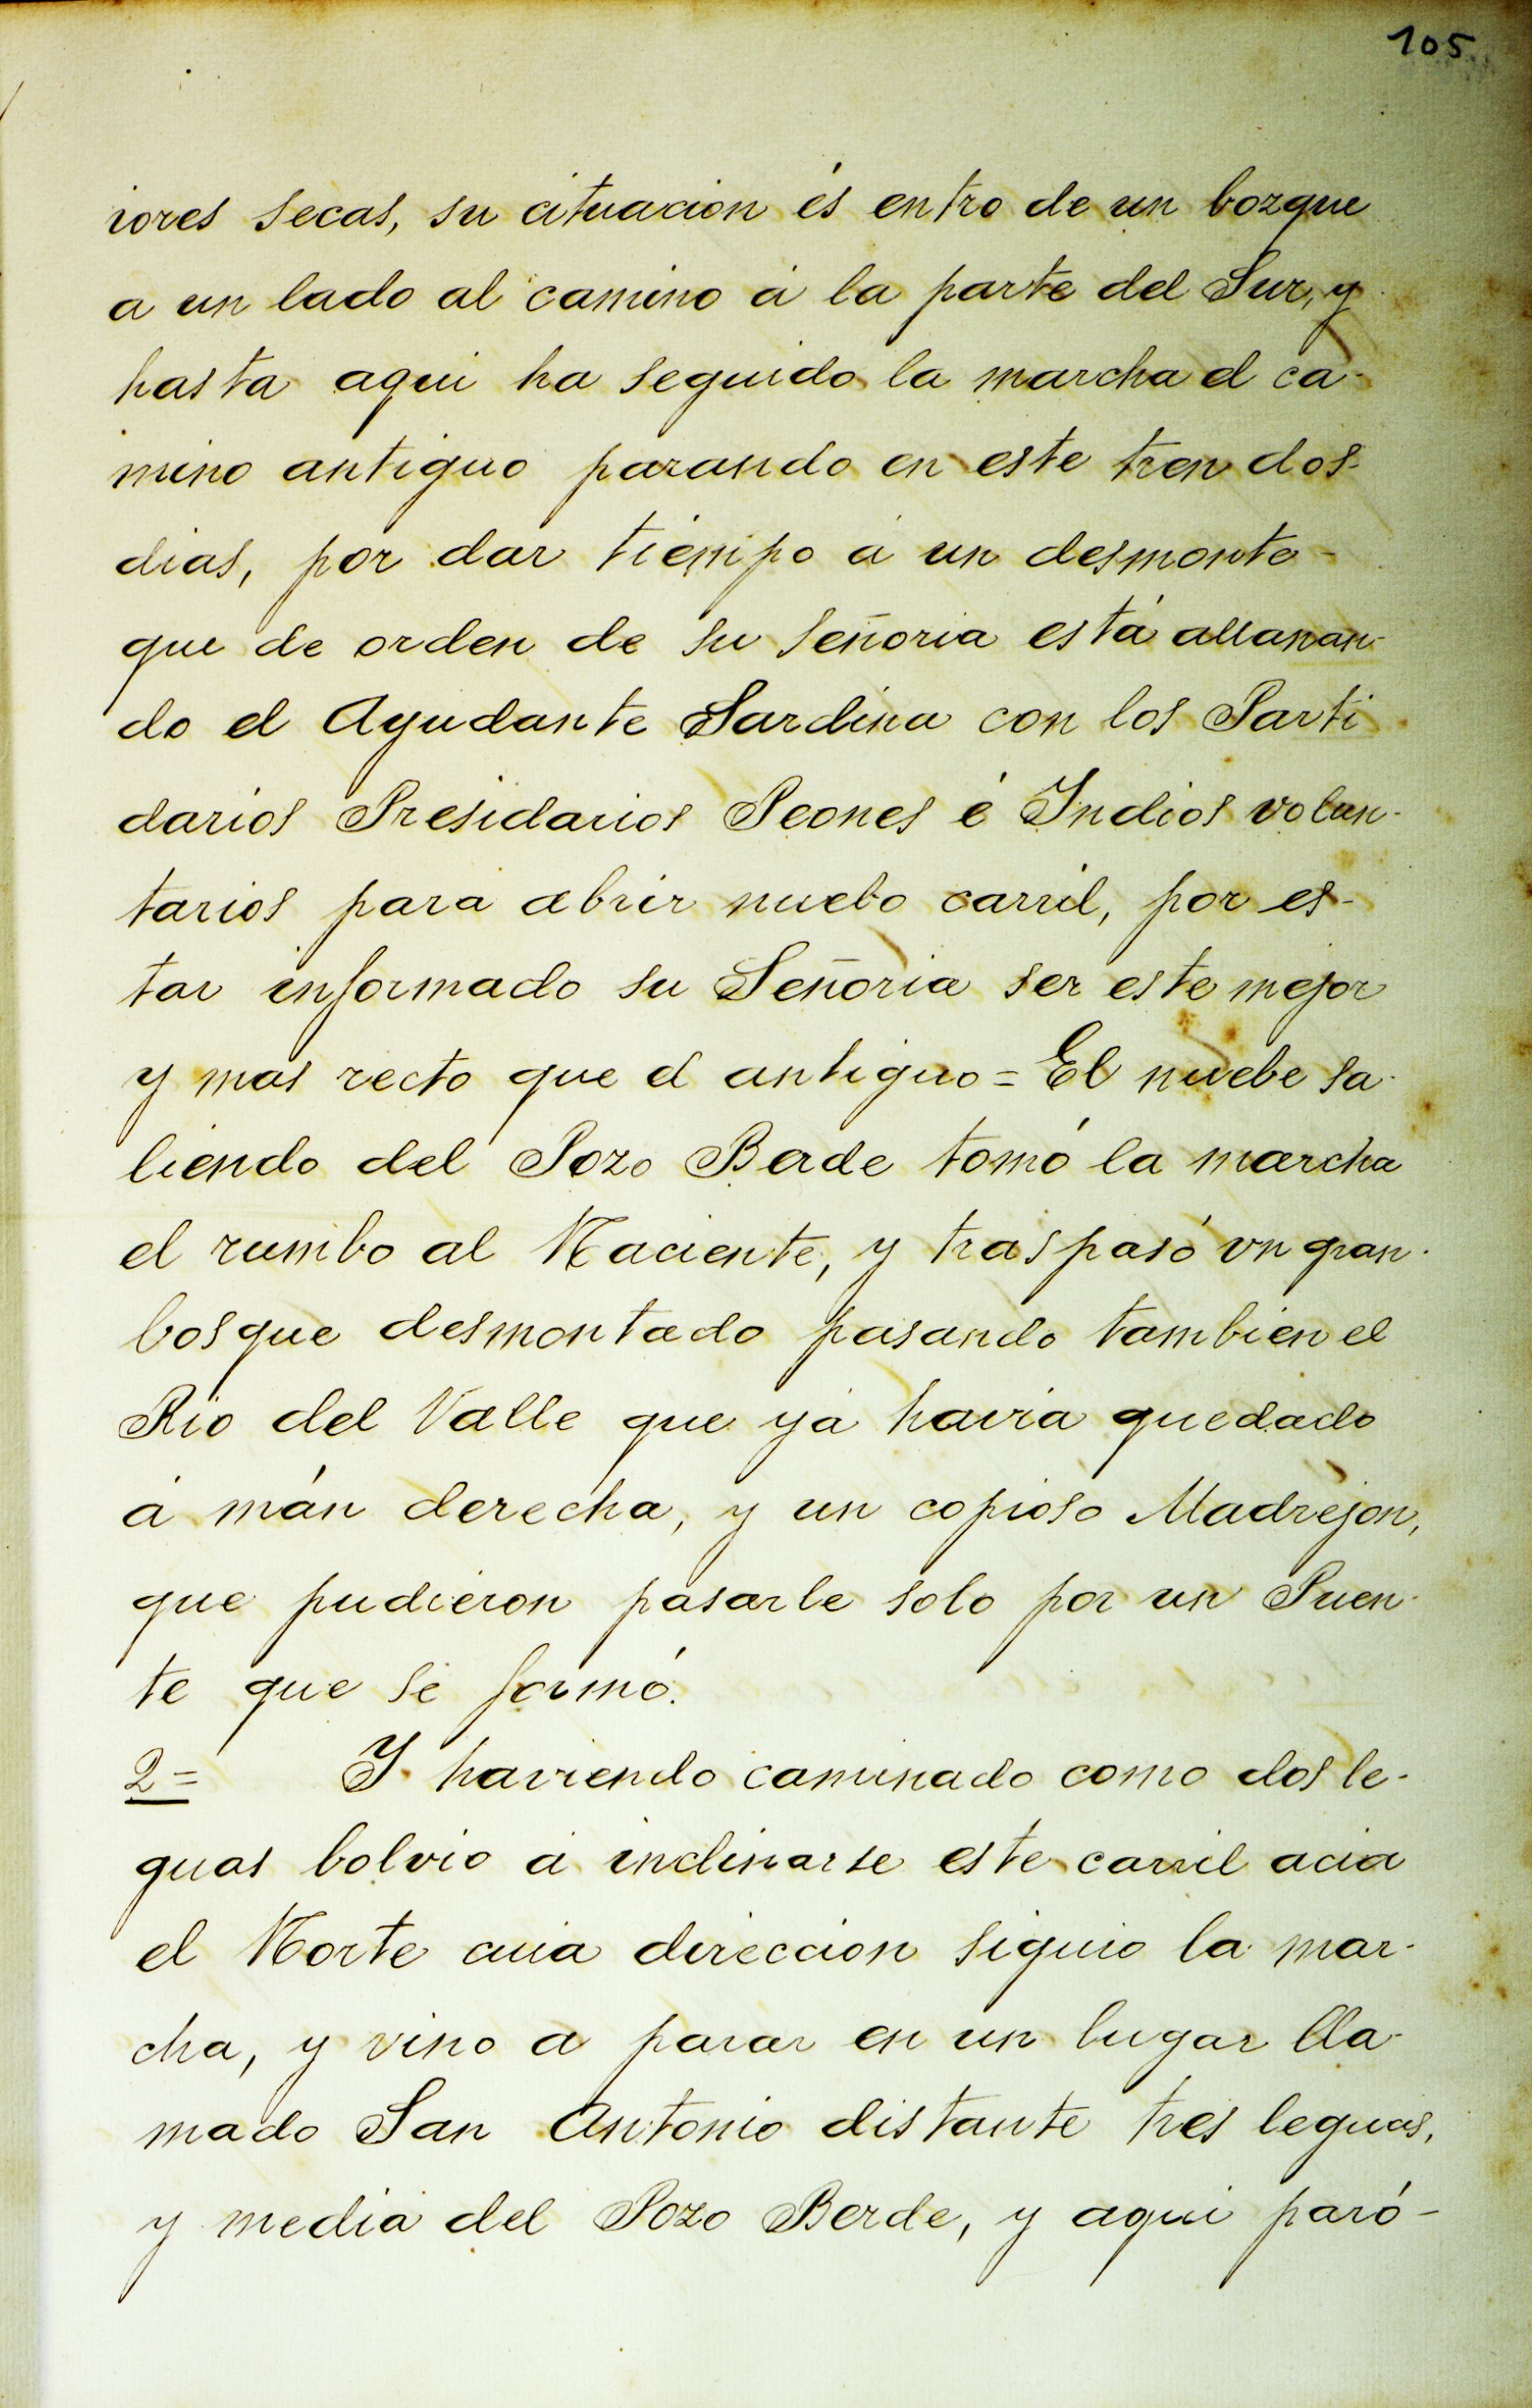 105
iores secas, su cituacion és entro de un bozque
a un lado al camino á la parte del Sur, y
hasta aqui ha seguido la marcha el ca-
mino antiguo parando en este tren dos-
dias, por dar tiempo á un desmonte-
que de orden de su señoria está allanan-
do el Ayudante Sardina con los Parti
darios Presidarios Peones é Indios volun-
tarios para abrir nuebo carril, por es-
tar informado su Señoria ser este mejor
y mas recto que el antiguo = El nuebe sa-
liendo del Pozo Berde tomó la marcha
el rumbo al Naciente, y traspasó vn gran-
bosque desmontado pasando tambien el
Rio del Valle que yá havia quedado
á mán derecha, y un copioso Madrejon,
que pudieron pasarle solo por un Puen-
te que se formó.
2= Y haviendo caminado como dos le-
guas bolvio á inclinarse este carril acia
el Norte cuia direccion siguio la mar-
cha, y vino a parar en un lugar lla-
mado San Antonio distante tres leguas,
y media del Pozo Berde, y aqui paró-